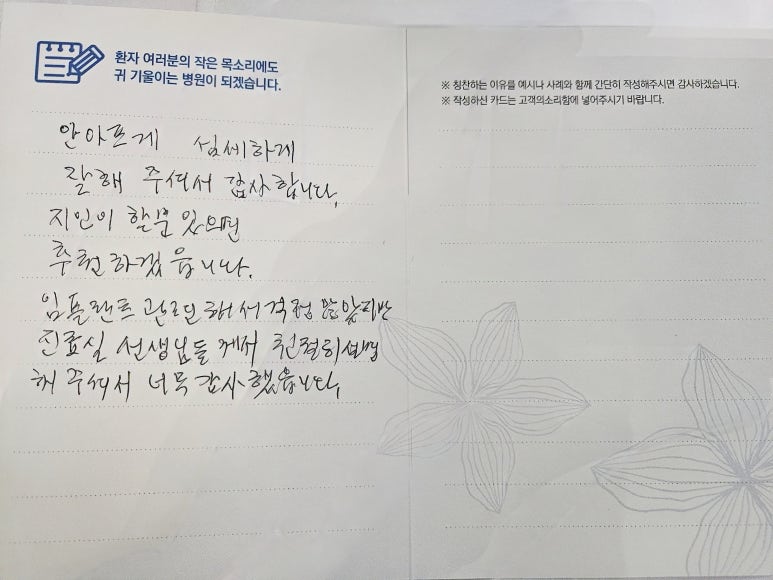 환자 여러분의 작은 목소리에도
귀 기울이는 병원이 되겠습니다.
안아프게 섬세하게
잘해 주셔서 감사합니다.
지인이 할분 있으면
추천하겠읍니다.
임플란트 관련해서 걱정 많았지만
진료실 선생님들 께서 친절히 설명
해 주셔서 너무 감사했읍니다.
※ 칭찬하는 이유를 예시나 사례와 함께 간단히 작성해주시면 감사하겠습니다.
※ 작성하신 카드는 고객의소리함에 넣어주시기 바랍니다.